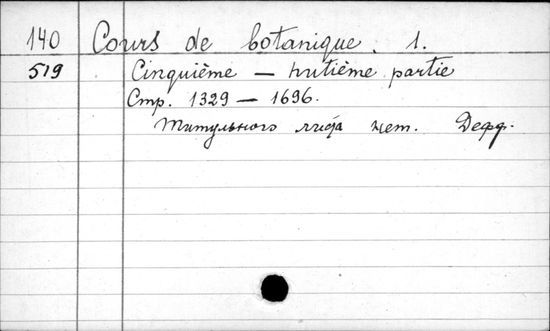 140 Cours de botanique. 1.
519 Cinquième — hutième partie
Стр. 1329 — 1696.
Титульного листа нет. Дефф.